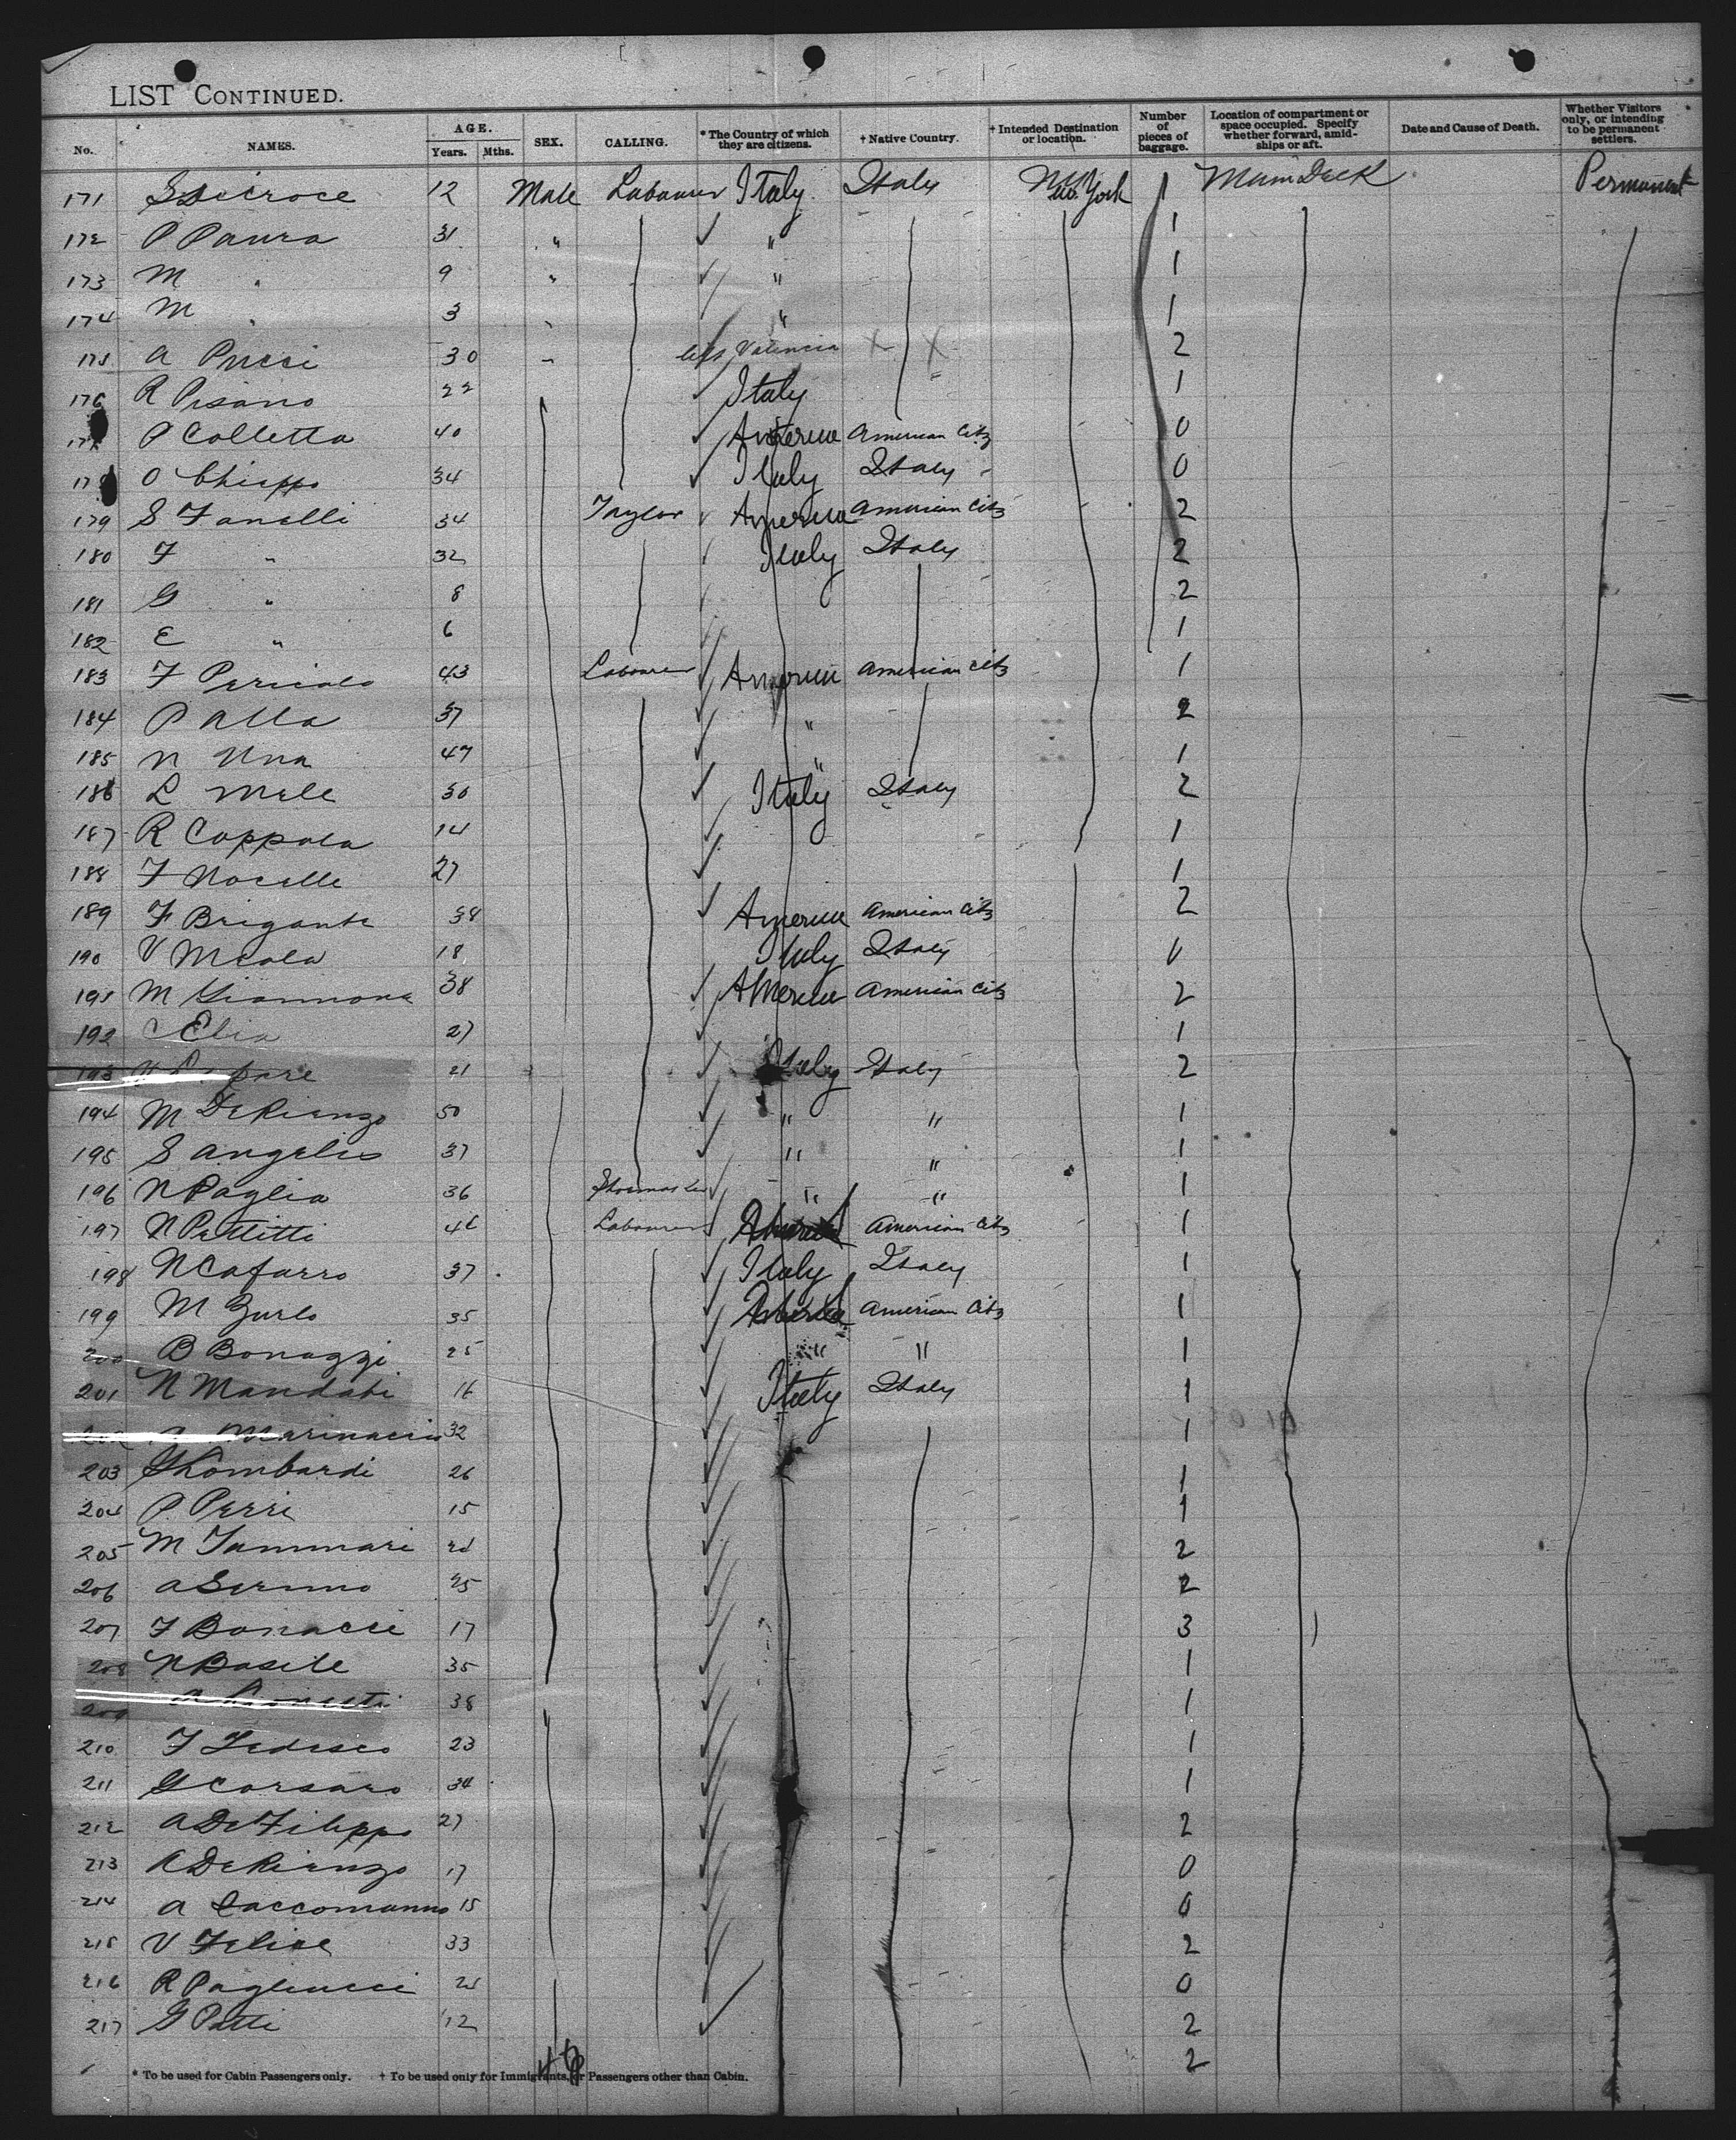 LIST CONTINUED.
No. NAMES. AGE. Years. Mths. SEX. CALLING. * The Country of which they are citizens. † Native Country. † Intended Destination or location. Number of pieces of baggage. Location of compartment or space occupied. Specify whether forward, amid-ships or aft. Date and Cause of Death. Whether Visitors only, or intending to be permanent settlers.
171 12 Male Labourer Italy Italy New York 1 Main Deck Permanent
172 P Paura 31 " " 1
173 M " 9 " " 1
174 M " 3 " " 1
175 A Pucci 30 " Valencia X X 2
176 R Pisano 22 Italy 1
177 P Colletta 40 America American Citz 0
178 O Chiappo 34 Italy Italy 0
179 S Fanelli 34 Taylor America American Citz 2
180 F " 32 Italy Italy 2
181 G " 8 2
182 E " 6 1
183 F Pericolo 43 Labourer America American Citz 1
184 P Alla 37 " 2
185 N Una 47 " 1
186 L Mele 30 Italy Italy 2
187 R Coppola 14 1
188 F Nocelle 27 1
189 F Brigante 38 America American Citz 2
190 V Meola 18 Italy Italy 0
191 M Giannone 38 America American Citz 2
192 C Elia 27 1
193 21 Italy Italy 2
194 M DeRienzo 50 " " 1
195 S Angelis 37 " " 1
196 N Paglia 36 Shoemaker " " 1
197 N Pettitti 46 Labourer America American Citz 1
198 N Cafarro 37 Italy Italy 1
199 M Zurlo 35 America American Citz 1
200 B Bonaggi 25 " " 1
201 N Mandati 16 Italy Italy 1
202 Marinaccio 32 1
203 G Lombardi 26 1
204 P Perri 15 1
205 M Tammari 2
206 A Serino 25 2
207 F Bonacci 17 3
208 N Basile 35 1
209 38 1
210 F Tedesco 23 1
211 G Corsaro 34 1
212 A De Filippo 27 2
213 A DeRienzo 17 0
214 A Saccomanno 15 0
215 V Felice 33 2
216 R Pagliucci 0
217 G Patti 12 2
2
* To be used for Cabin Passengers only. † To be used only for Immigrants, or Passengers other than Cabin.